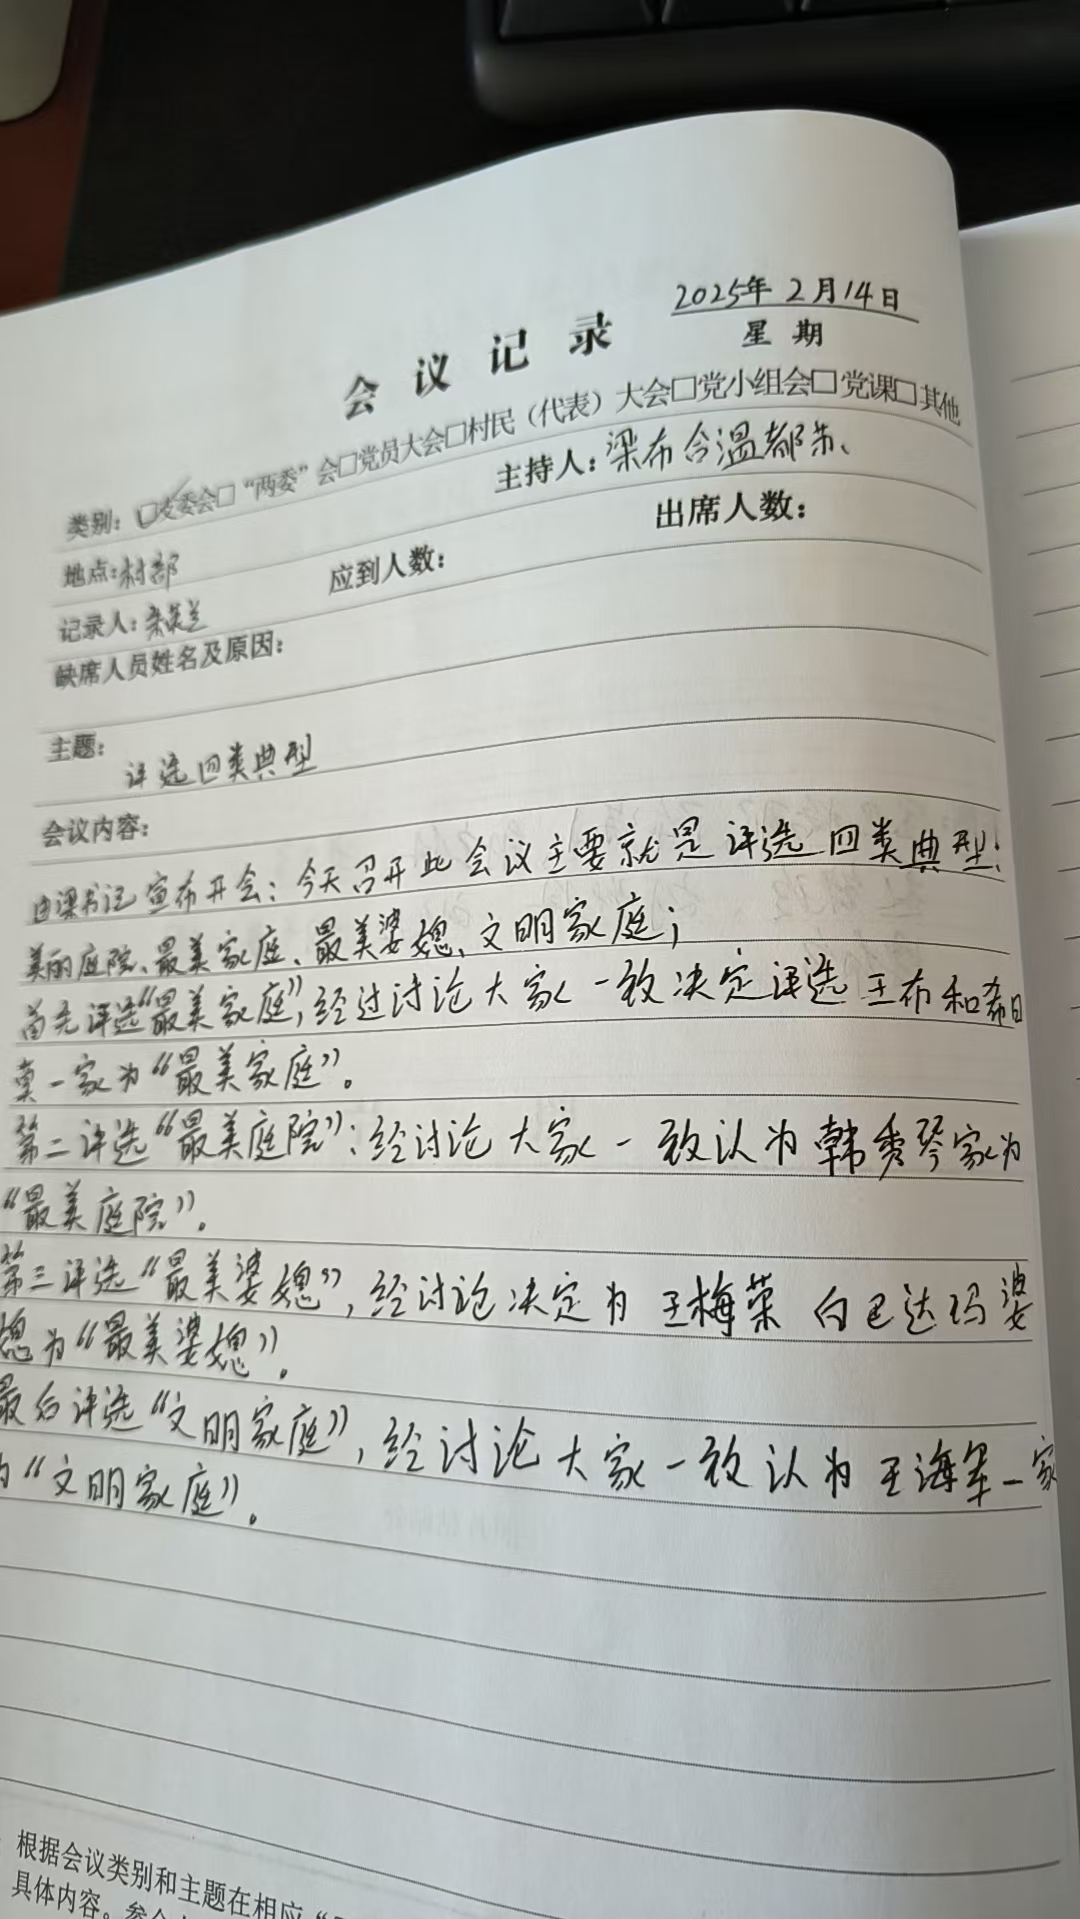 2025年2月14日
会议记录 星期
类别：□支委会□“两委”会□党员大会□村民（代表）大会□党小组会□党课□其他
地点：村部 主持人：梁布合温都苏、
记录人： 应到人数： 出席人数：
缺席人员姓名及原因：
主题：
评选四类典型
会议内容：
由梁书记宣布开会：今天召开此会议主要就是评选四类典型：
美丽庭院、最美家庭、最美婆媳、文明家庭；
首先评选“最美家庭”，经过讨论大家一致决定评选王布和希日
一家为“最美家庭”。
第二评选“最美庭院”：经讨论大家一致认为韩秀琴家为
“最美庭院”。
第三评选“最美婆媳”，经讨论决定为王梅荣 白巴达玛婆
媳为“最美婆媳”。
最后评选“文明家庭”，经讨论大家一致认为王海军一家
为“文明家庭”。
根据会议类别和主题在相应“
具体内容。参会